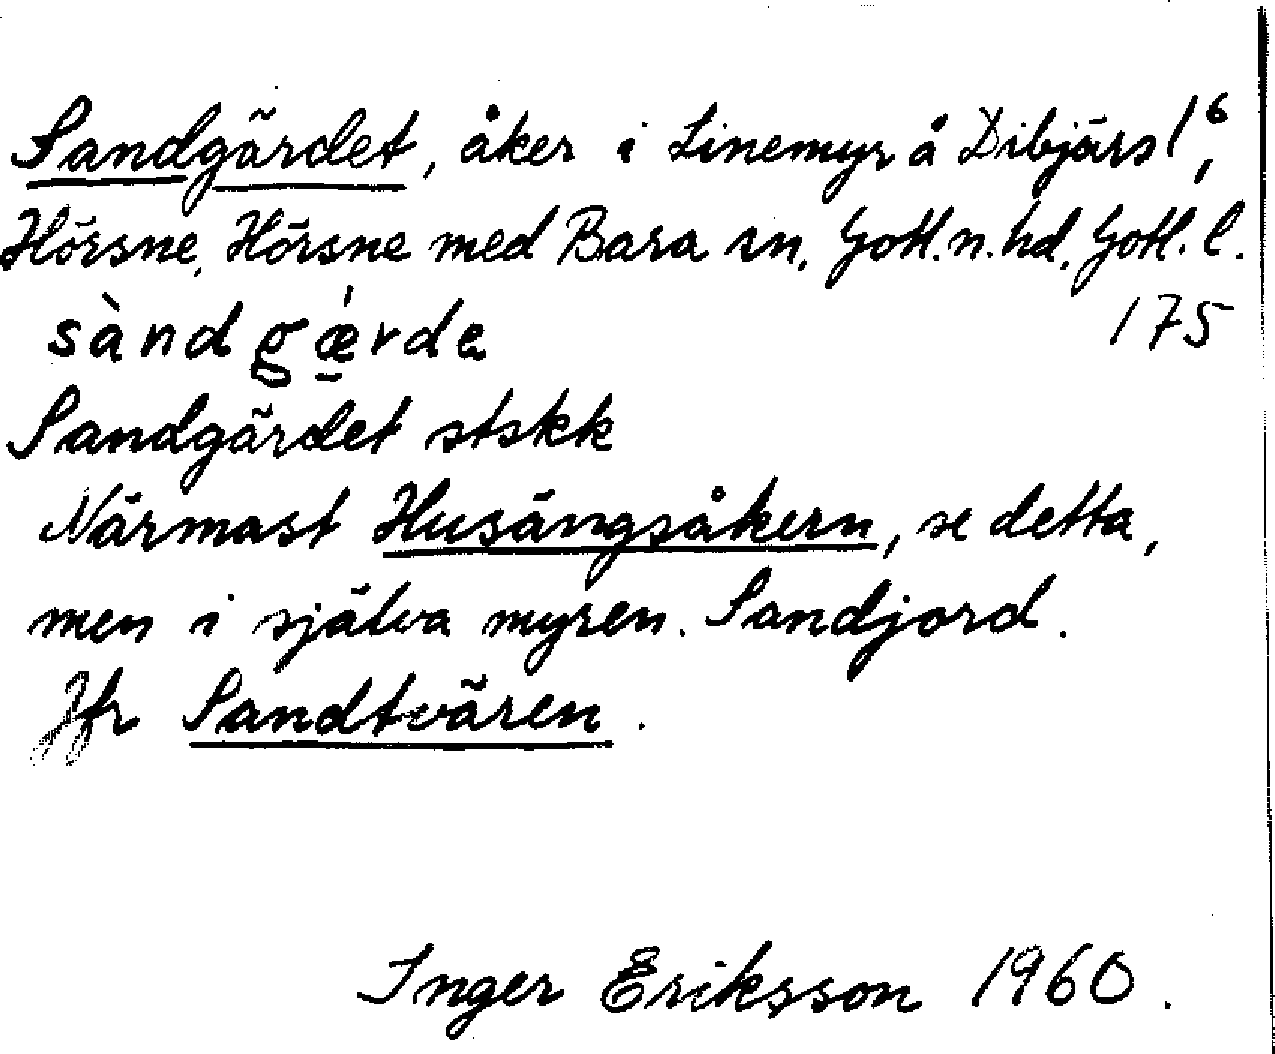 Sandgärdet, åker i Linemyr å Dibjärs 1⁶,
Hörsne, Hörsne med Bara sn, Gotl. n. hd, Gotl. l.
sàndgǽrde
175
Sandgärdet stskk
Närmast Husängsåkern, se detta,
men i själva myren. Sandjord.
Jfr Sandtvären.
Inger Eriksson 1960.